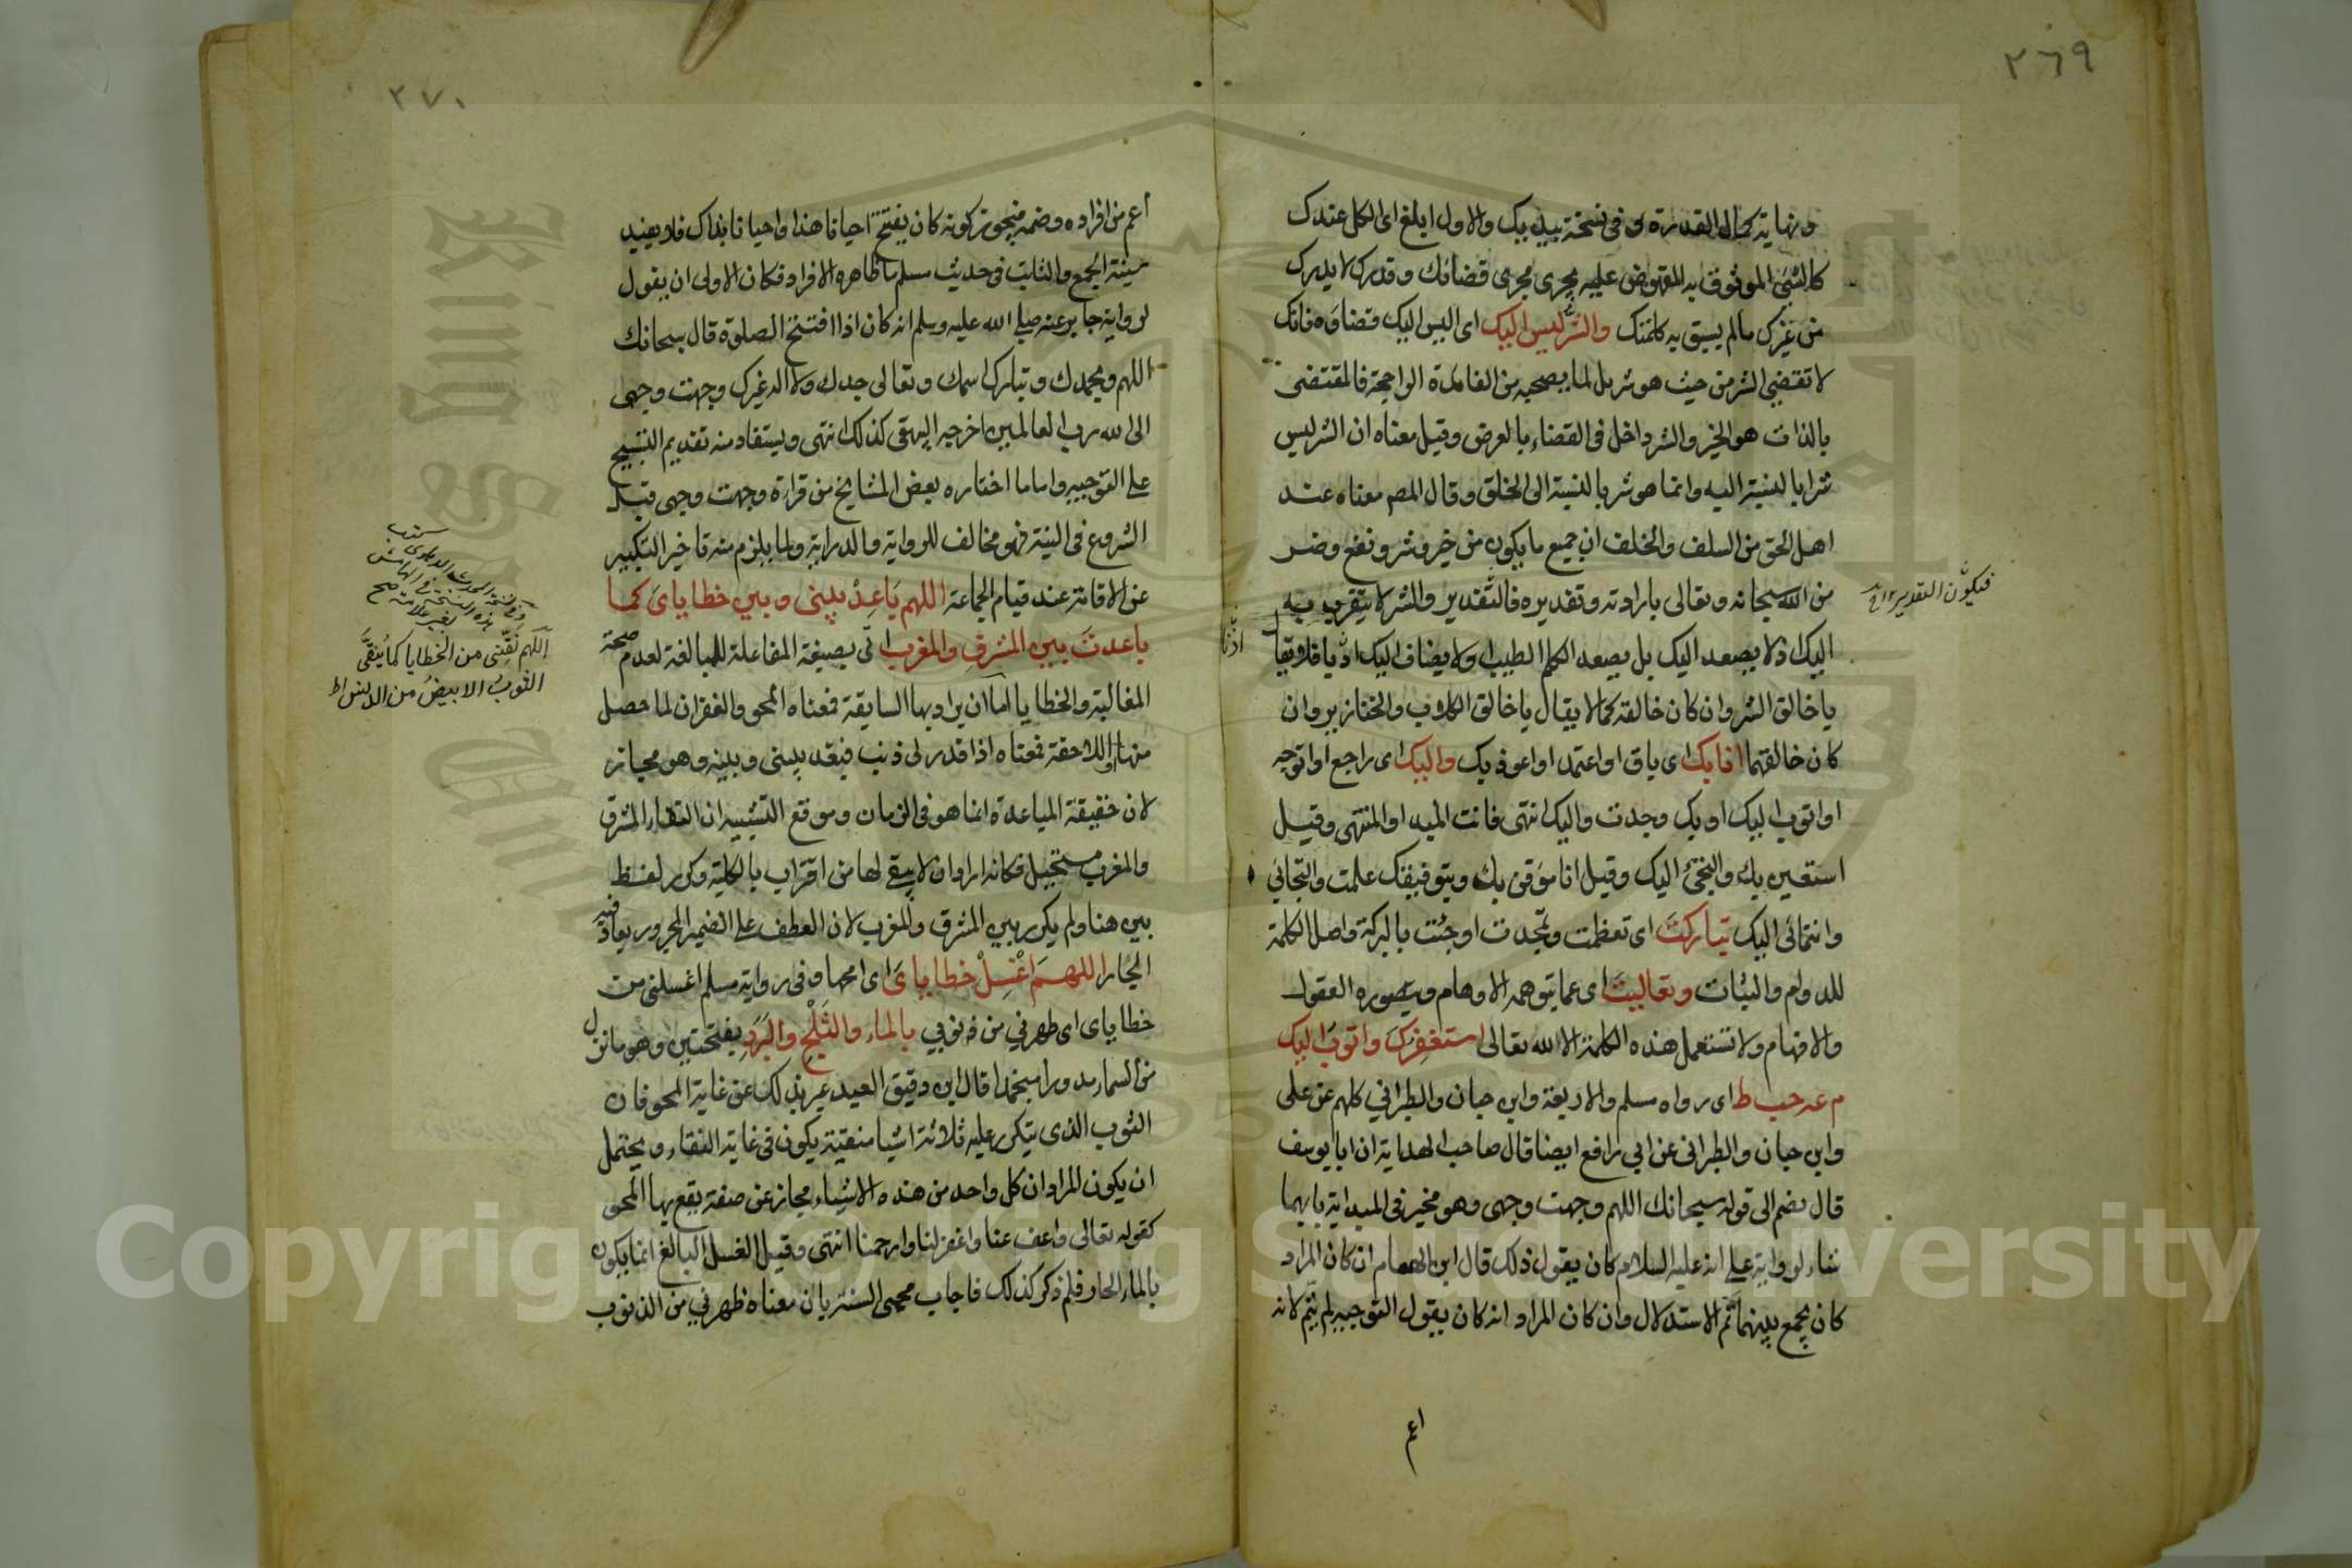 ٢٦٩
ونهاية كمال القدرة وفى نسخة بيديك والاول ابلغ اى الكل عندك
كالشئ الموثوق به المقبوض عليه يجرى مجرى قضائك وقدرك لا يدرك
من غيرك مالم يسبق به كلمتك والشر ليس اليك اى ليس اليك قضاؤه فانك
لا تقضى الشر من حيث هو شر بل لما يصحبه من الفائدة الراجحة فالمقتضى
بالذات هو الخير والشر داخل فى القضاء بالعرض وقيل معناه ان الشر ليس
شرا بالنسبة اليه وانما هو شر بالنسبة الى الخلق وقال المص معناه عند
اهل الحق من السلف والخلف ان جميع ما يكون من خير وشر ونفع وضر
من الله سبحانه وتعالى بارادته وتقديره فالتقدير والشر لا يتقرب به
فيكون التقدير الخ
اليك اذ لا يصعد اليك بل يصعد الكلم الطيب ولا يضاف اليك ادبا فلا يقال
يا خالق الشر وان كان خالقه كما لا يقال يا خالق الكلاب والخنازير وان
كان خالقهما انا بك اى باق او اعتمد او اعوذ بك واليك اى راجع او اتوجه
او اتوب اليك او بك وجدت واليك انتهى فانت المبدا والمنتهى وقيل
استعين بك والتجئ اليك وقيل انا موقن بك وبتوفيقك علمت والتجائى
وانتمائى اليك تباركت اى تعظمت وتمجدت او جئت بالبركة واصل الكلمة
للدوام والثبات وتعاليت اى عما يتوهمه الاوهام ويتصوره العقول
والافهام ولا تستعمل هذه الكلمة الا لله تعالى استغفرك واتوب اليك
م عه حب ط اى رواه مسلم والاربعة وابن حبان والطبرانى كلهم عن على
وابن حبان والطبرانى عن ابى رافع ايضا قال صاحب الهداية ان ابا يوسف
قال يضم الى قوله سبحانك اللهم وجهت وجهى وهو مخير فى البداية بايهما
شاء لرواية على انه عليه السلام كان يقول ذلك قال ابن الهمام ان كان المراد
كان يجمع بينهما تم الاستدلال وان كان المراد انه كان يقول التوجيه لم يتم لانه
اعم
٢٧٠
اعم من افراده وضمه فيجوز كونه كان يفتتح احيانا هذا واحيانا بذاك فلا يفيد
سنية الجمع والثابت فى حديث مسلم ما ظاهره الافراد فكان الاولى ان يقول
لرواية جابر عنه صلى الله عليه وسلم انه كان اذا افتتح الصلوة قال سبحانك
اللهم وبحمدك وتبارك اسمك وتعالى جدك ولا اله غيرك وجهت وجهى
الى الله رب العالمين اخرجه البيهقى كذلك انتهى ويستفاد منه تقديم التسبيح
على التوجيه واما ما اختاره بعض المشايخ من قراءة وجهت وجهى قبل
الشروع فى النية فهو مخالف للرواية والدراية ولما يلزم منه تاخير التكبير
عن الاقامة عند قيام الجماعة اللهم باعد بينى وبين خطاياى كما
باعدت بين المشرق والمغرب اتى بصيغة المفاعلة للمبالغة لعدم صحة
المغالبة والخطايا اما ان يراد بها السابقة فمعناه المحو والغفران لما حصل
منها او اللاحقة فمعناه اذا قدر لى ذنب فبعد بينى وبينه وهو مجاز
لان حقيقة المباعدة انما هو فى الزمان وموقع التشبيه ان التقاء المشرق
والمغرب مستحيل فكانه اراد ان لا يبقى لها من اقتراب بالكلية وكرر لفظ
بين هنا ولم يكرر بين المشرق والمغرب لان العطف على الضمير المجرور يعاد فيه
الجار اللهم اغسل خطاياى اى امحها وفى رواية مسلم اغسلنى من
خطاياى اى طهرنى من ذنوبى بالماء والثلج والبرد بفتحتين وهو ما نزل
من السماء مدورا منجمدا قال ابن دقيق العيد عبر بذلك عن غاية المحو فان
الثوب الذى يتكرر عليه ثلاثة اشيا منقية يكون فى غاية النقاء ويحتمل
ان يكون المراد ان كل واحد من هذه الاشياء مجاز عن صفة يقع بها المحو
كقوله تعالى واعف عنا واغفر لنا وارحمنا انتهى وقيل الغسل البالغ انما يكون
بالماء الحار فلم ذكر كذلك فاجاب محيى السنة بان معناه طهرنى من الذنوب
اللهم نقنى من الخطايا كما ينقى
الثوب الابيض من الدنس اط
King Saud University
Copyright © King Saud University